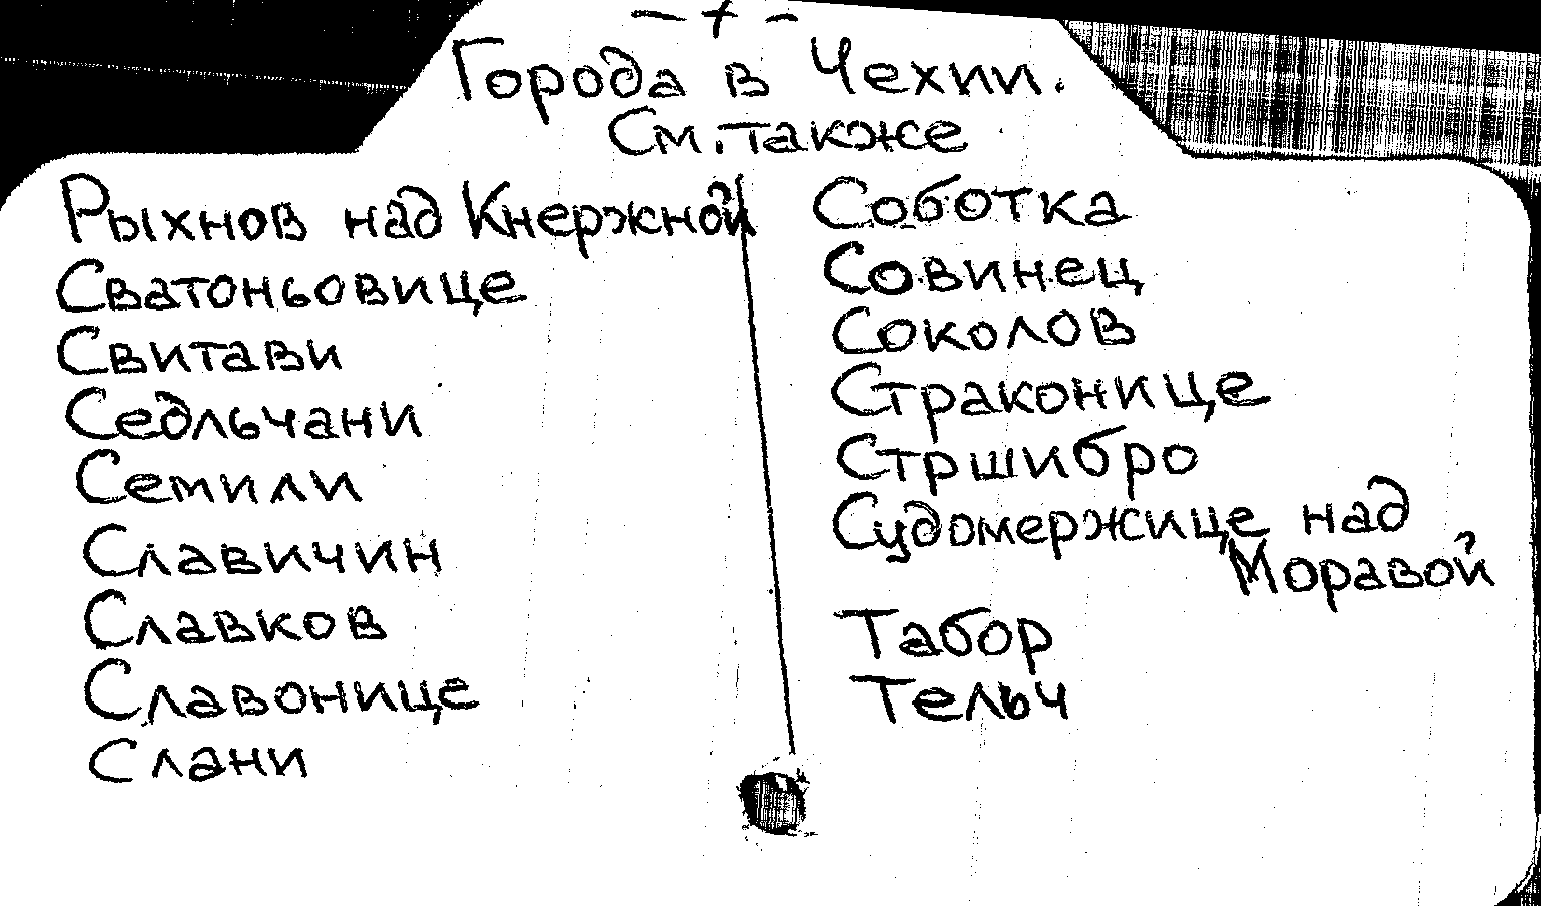 - 7 -
Города в Чехии.
См. также
Рыхнов над Кнержной
Сватоньовице
Свитави
Седльчани
Семили
Славичин
Славков
Славонице
Слани
Соботка
Совинец
Соколов
Страконице
Стршибро
Судомержице над
Моравой
Табор
Тельч